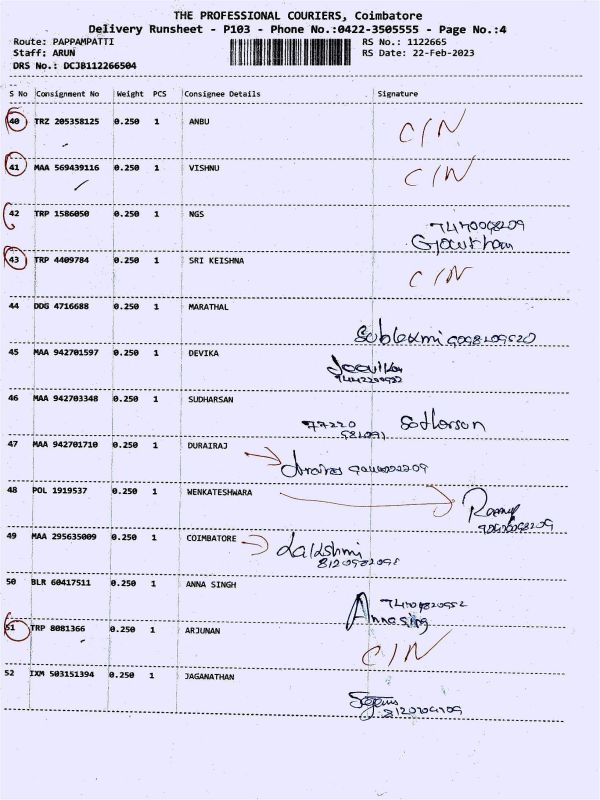 THE PROFESSIONAL COURIERS, Coimbatore
Delivery Runsheet - P103 - Phone No.:0422-3505555 - Page No.:4
Route: PAPPAMPATTI RS No.: 1122665
Staff: ARUN RS Date: 22-Feb-2023
DRS No.: DCJB112266504
S No Consignment No Weight PCS Consignee Details Signature
40 TRZ 205358125 0.250 1 ANBU C/N
41 MAA 569439116 0.250 1 VISHNU C/N
42 TRP 1586050 0.250 1 NGS
Gowtham
43 TRP 4409784 0.250 1 SRI KEISHNA C/N
44 DDG 4716688 0.250 1 MARATHAL
Sublaxmi
45 MAA 942701597 0.250 1 DEVIKA
46 MAA 942703348 0.250 1 SUDHARSAN
77220 Sotharson
47 MAA 942701710 0.250 1 DURAIRAJ
48 POL 1919537 0.250 1 WENKATESHWARA
49 MAA 295635009 0.250 1 COIMBATORE
Lakshmi
50 BLR 60417511 0.250 1 ANNA SINGH
Annasing
51 TRP 8081366 0.250 1 ARJUNAN C/N
52 IXM 503151394 0.250 1 JAGANATHAN